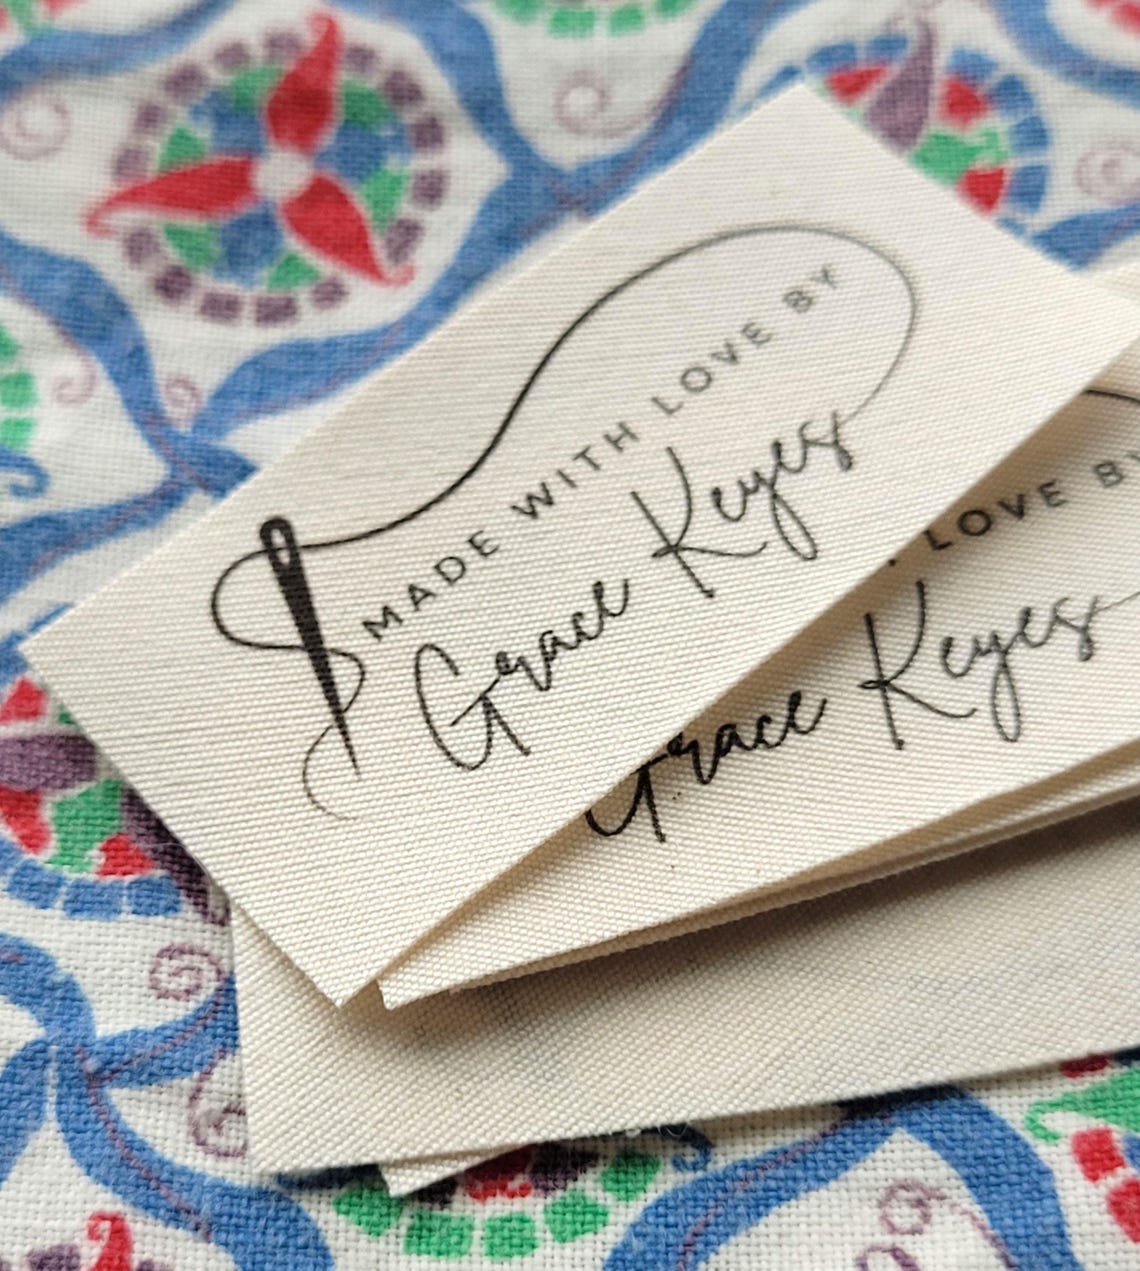 MADE WITH LOVE BY
Grace Keyes
LOVE BY
Grace Keyes